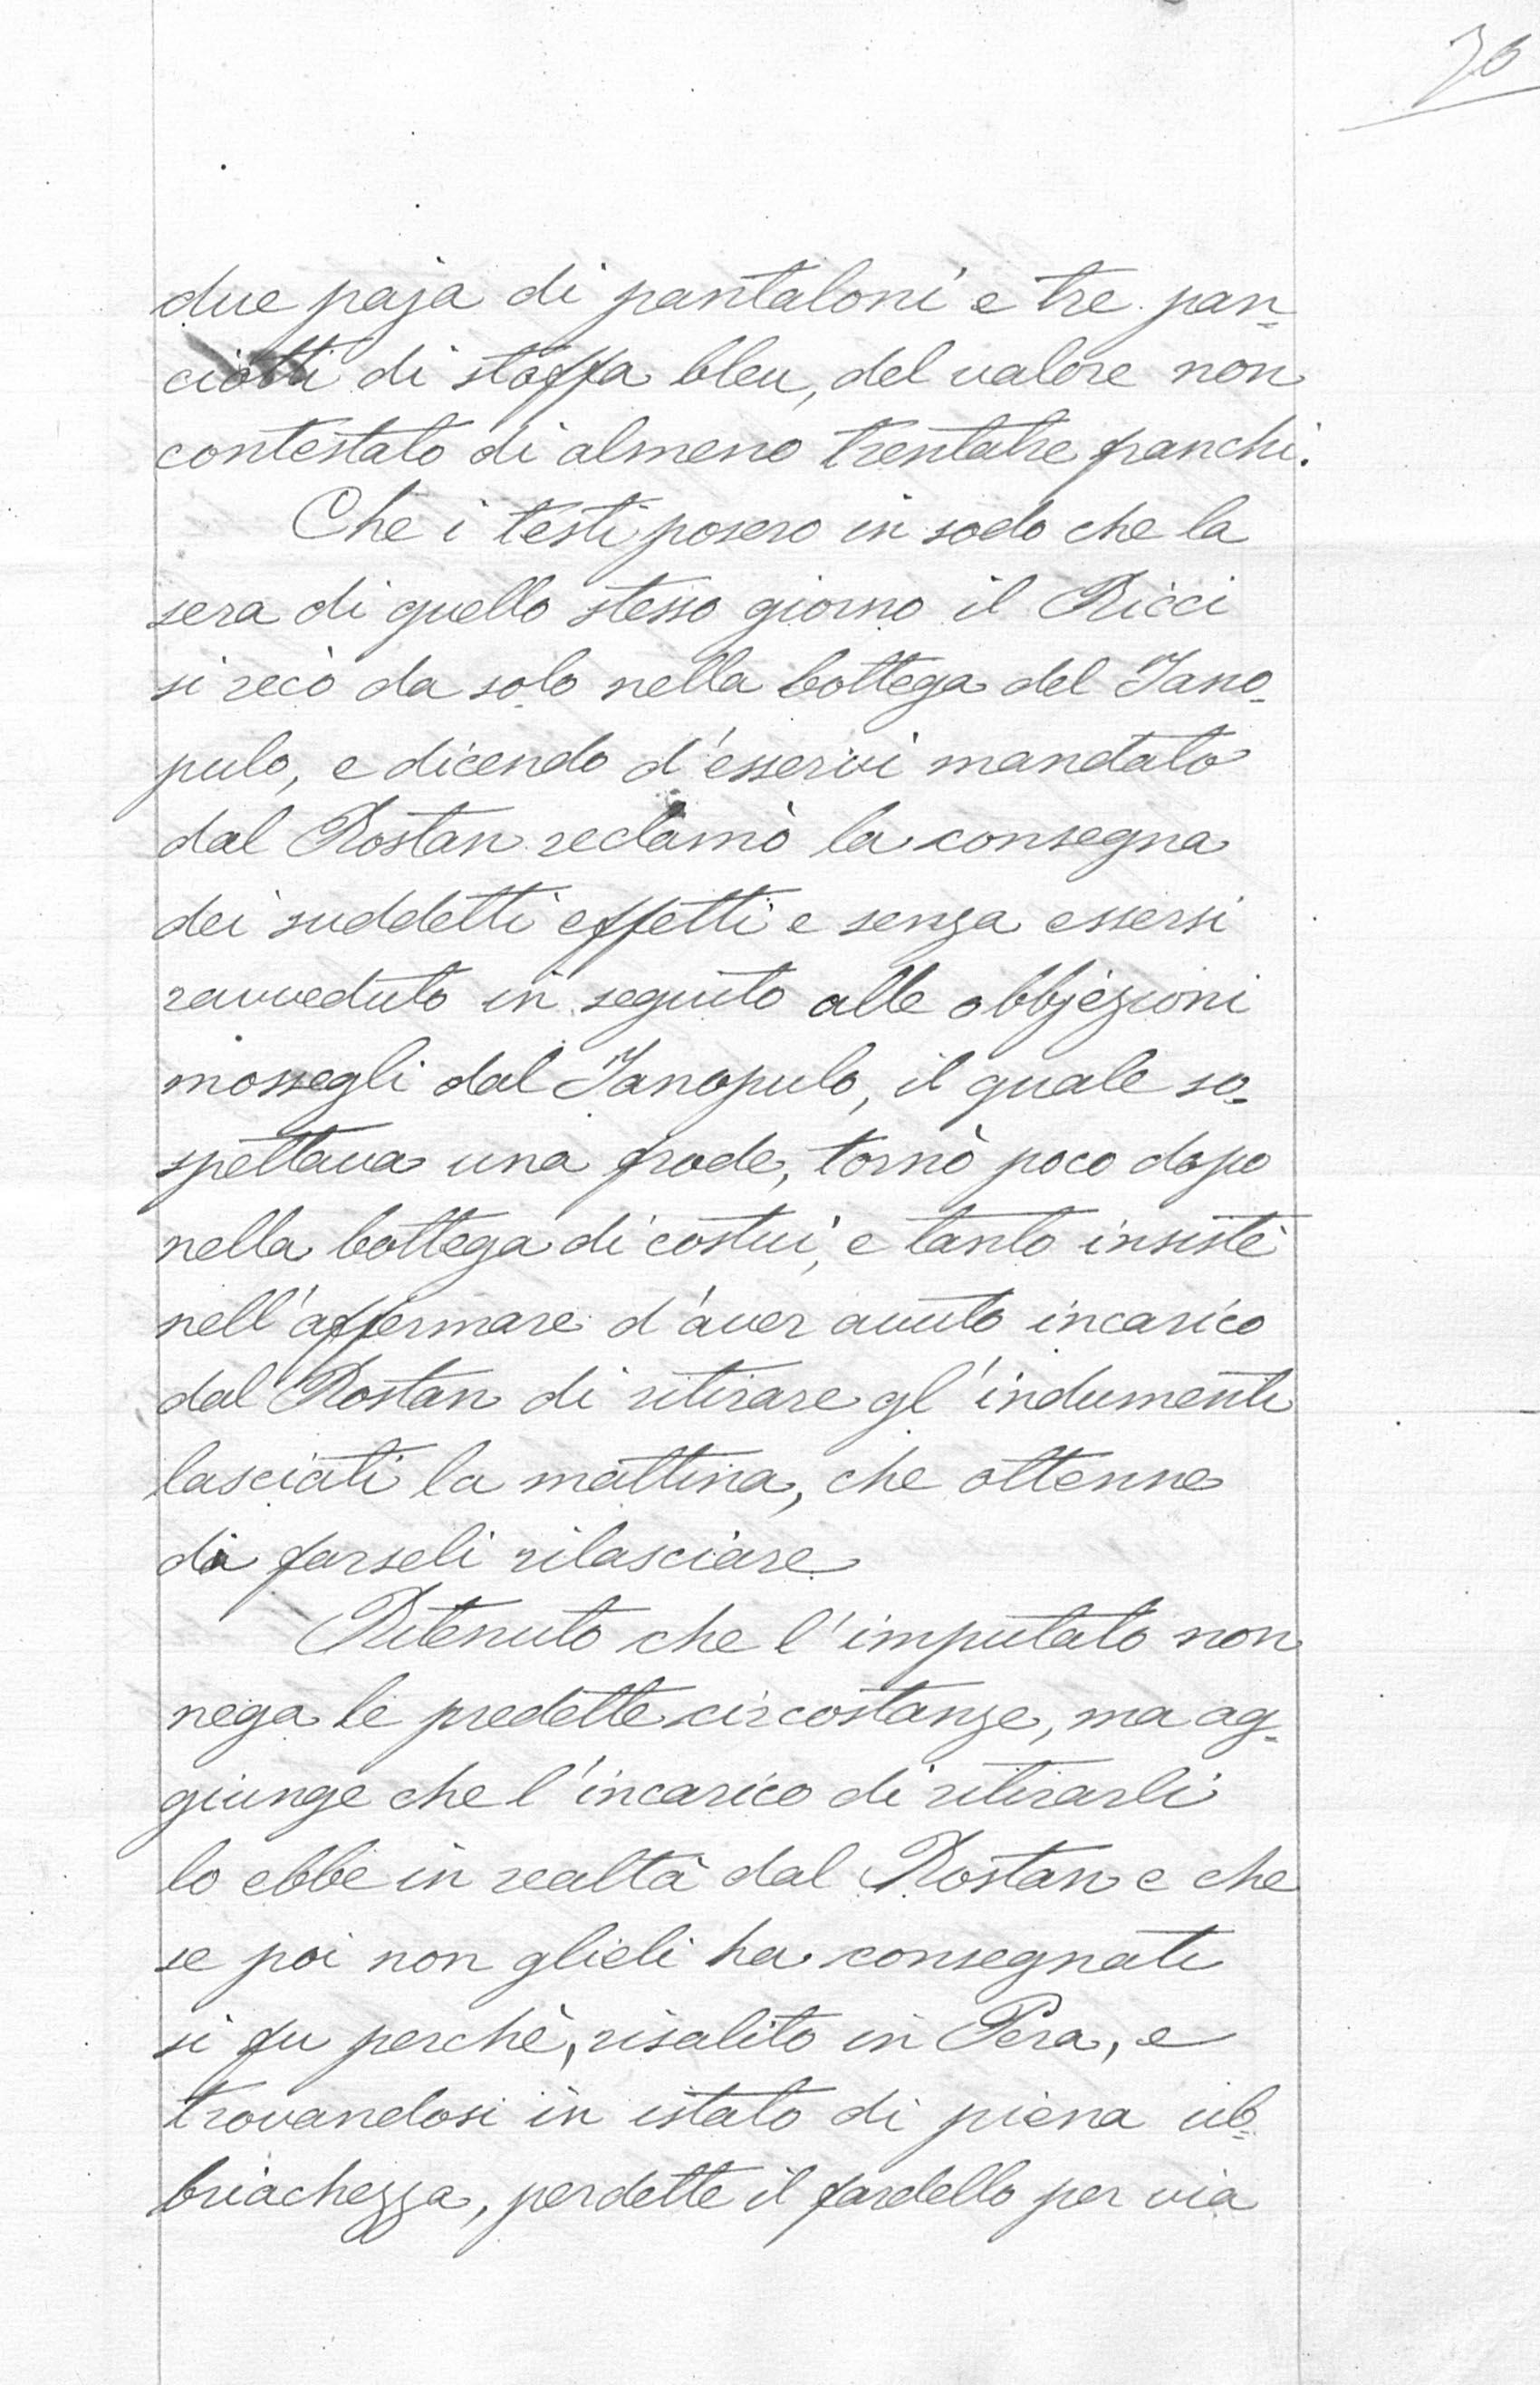 76
due paja di pantaloni e tre pan-
ciotti di stoffa bleu, del valore non
contestato di almeno trentatre franchi.
Che i testi posero in sodo che la
sera di quello stesso giorno il Ricci
si recò da solo nella bottega del Jano-
pulo, e dicendo d'esservi mandato
dal Rostan reclamò la consegna
dei suddetti effetti e senza essersi
ravveduto in seguito alle obbjezioni
mossegli dal Janopulo, il quale so-
spettava una frode, tornò poco dopo
nella bottega di costui, e tanto insistè
nell'affermare d'aver avuto incarico
dal Rostan di ritirare gl'indumenti
lasciati la mattina, che ottenne
di farseli rilasciare
Ritenuto che l'imputato non
nega le predette circostanze, ma ag-
giunge che l'incarico di ritirarli
lo ebbe in realtà dal Rostan e che
se poi non glieli ha consegnati
si fu perchè, risalito in Pera, e
trovandosi in istato di piena ub-
briachezza, perdette il fardello per via